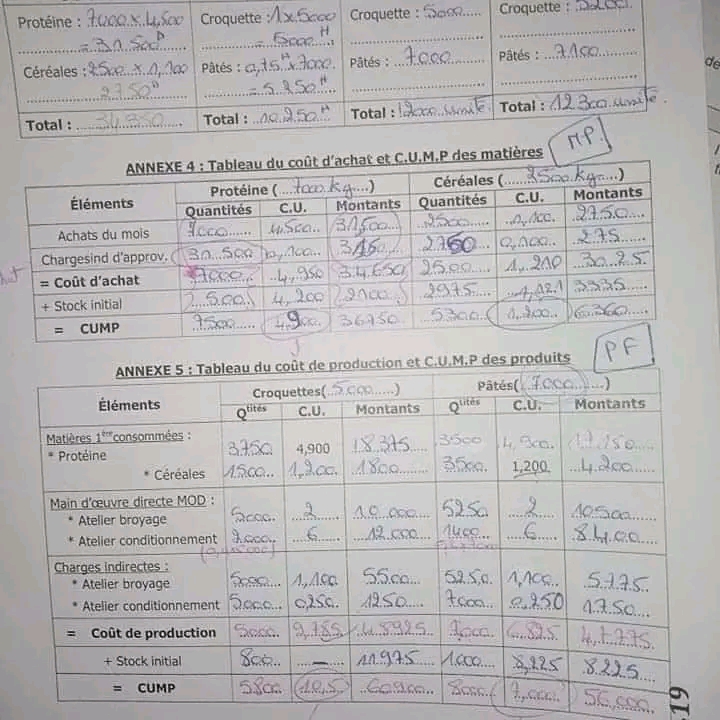 Protéine : 7000 x 4,500
= 31.500 D
Céréales : 2500 x 1,100
2750 D
Total : 34.250
Croquette : 1 x 5000
= 5000 H
Pâtés : 0,75 H x 7000
= 5.250 H
Total : 10.250 H
Croquette : 5000
Pâtés : 7000
Total : 12000 unité
Croquette : 5200
Pâtés : 7100
Total : 12300 unité
M.P.
ANNEXE 4 : Tableau du coût d'achat et C.U.M.P des matières
Éléments Protéine ( 7000 kg ) Céréales ( 2500 kg )
Quantités C.U. Montants Quantités C.U. Montants
Achats du mois 7000 4,500 31,500 2500 1,100 2750
Chargesind d'approv. 31.500 0,100 3150 2750 0,100 275
= Coût d'achat 7000 4,950 34.650 2500 1,210 3025
+ Stock initial 500 4,200 2100 2975 1,121 3335
= CUMP 7500 4,900 36750 5300 1,200 6.360
PF
ANNEXE 5 : Tableau du coût de production et C.U.M.P des produits
Éléments Croquettes( 5.000 ) Pâtés( 7.000 )
Qtités C.U. Montants Qtités C.U. Montants
Matières 1ère consommées :
* Protéine 3750 4,900 18.375 3500 4,900 17.150
* Céréales 1500 1,200 1800 3500 1,200 4.200
Main d'œuvre directe MOD :
* Atelier broyage 5000 2 10.000 5250 2 10500
* Atelier conditionnement 2000 6 12.000 1400 6 8400
Charges indirectes :
* Atelier broyage 5000 1,100 5500 5250 1,100 5.775
* Atelier conditionnement 5000 0,250 1250 7000 0,250 1.750
= Coût de production 5000 9,785 48925 7000 6,825 47.775
+ Stock initial 800 - 11975 1000 8,225 8.225
= CUMP 5800 10,5 60900 8000 7,000 56,000
19